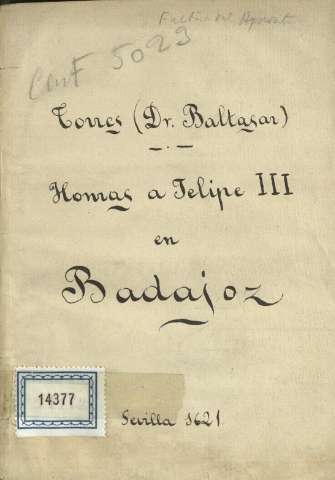 CauF 5023
Torres (Dr. Baltasar)
Honras a Felipe III
en
Badajoz
14377
Sevilla 1621